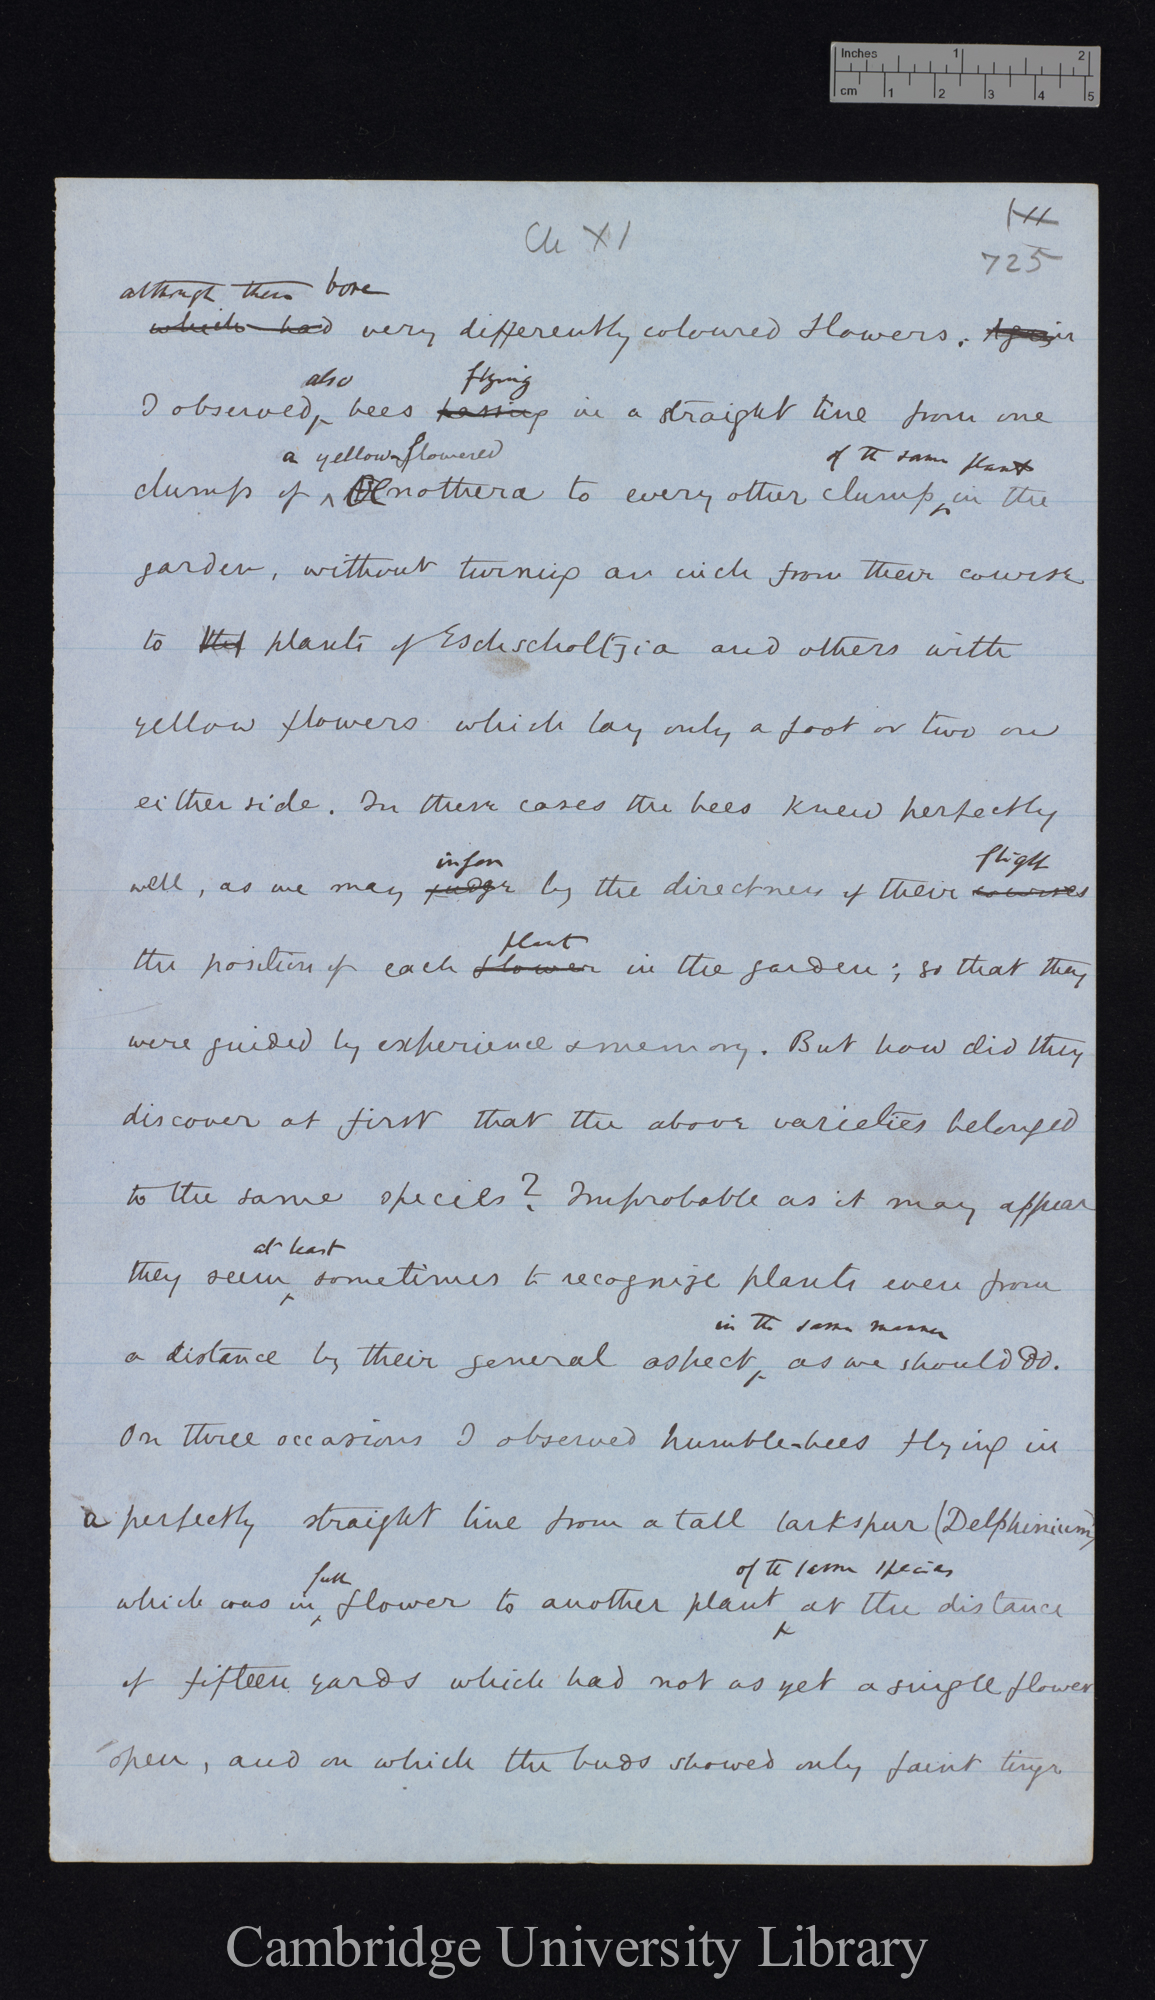 Inches 1 2
cm 1 2 3 4 5
Ch XI
725
although these bore
which had very differently coloured flowers. Again
also flying
I observed, bees passing in a straight line from one
a yellow-flowered of the same plant
clump of Œnothera to every other clump, in the
garden, without turning an inch from their course
to the plants of Eschscholtzia and others with
yellow flowers which lay only a foot or two on
either side. In these cases the bees knew perfectly
infer flight
well, as we may judge by the directness of their courses
plant
the position of each flower in the garden; so that they
were guided by experience & memory. But how did they
discover at first that the above varieties belonged
to the same species? Improbable as it may appear
at least
they seem sometimes to recognize plants even from
in the same manner
a distance by their general aspect, as we should do.
On three occasions I observed humble-bees flying in
a perfectly straight line from a tall larkspur (Delphinium)
full of the same species
which was in flower to another plant at the distance
of fifteen yards which had not as yet a single flower
open, and on which the buds showed only faint tinge
Cambridge University Library